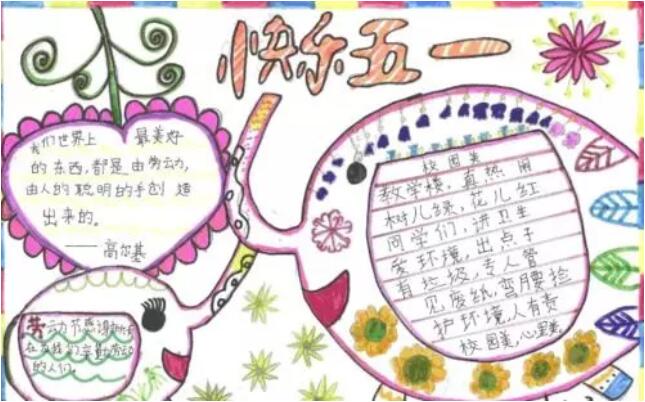 快乐五一
我们世界上最美好
的东西,都是由劳动,
由人的聪明的手创造
出来的。
——高尔基
校园美
教学楼,真热闹
树儿绿,花儿红
同学们,讲卫生
爱环境,出点子
有垃圾,专人管
见废纸,弯腰捡
护环境,人有责
校园美,心里美
劳动节感谢
在为我们辛勤劳动
的人们。